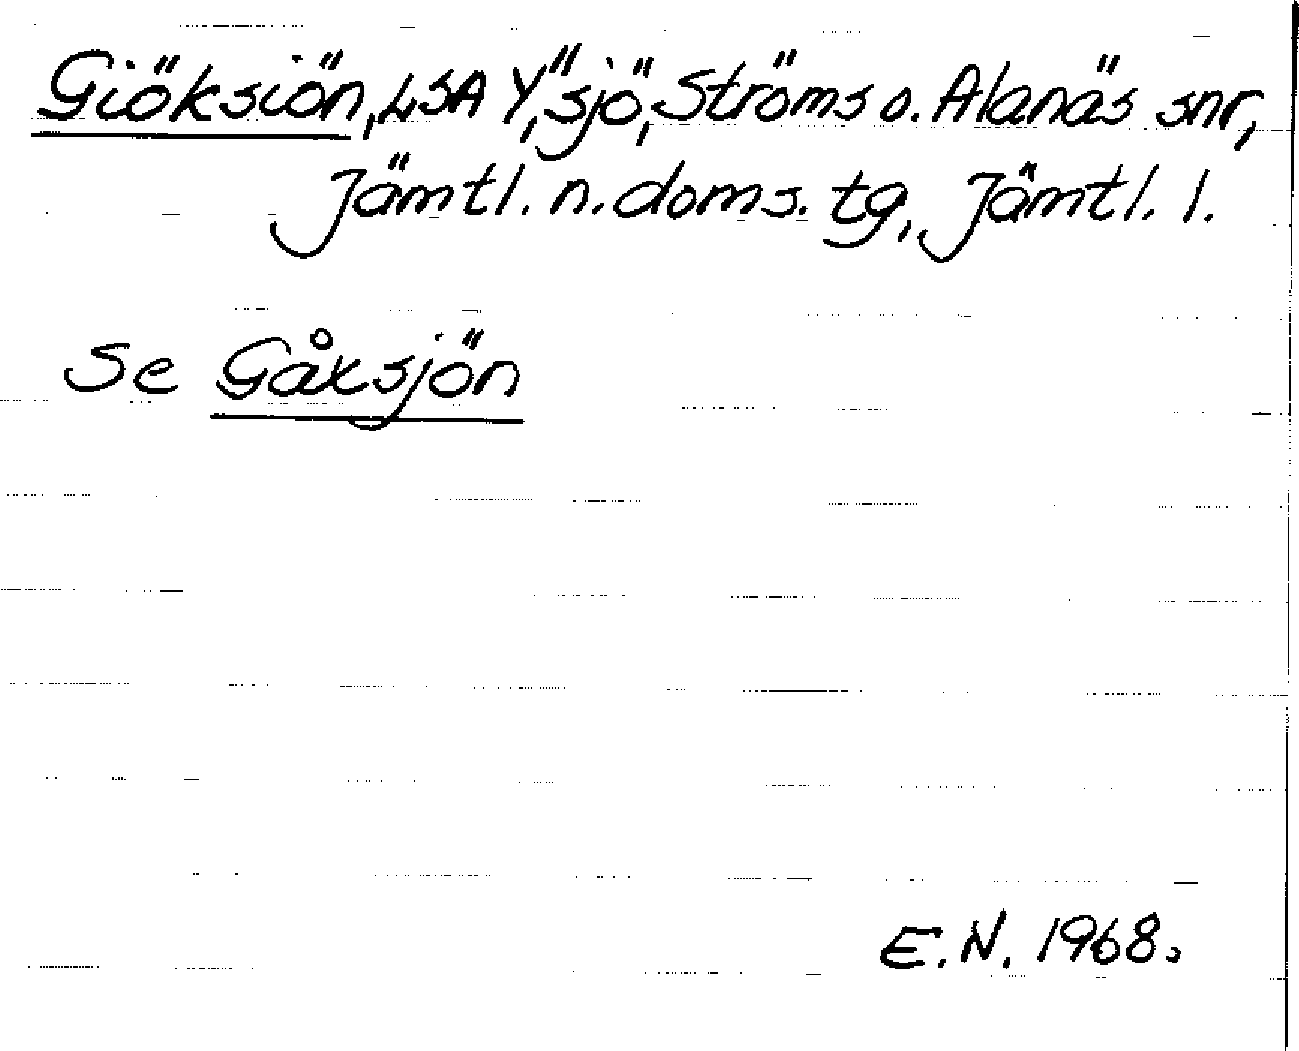 Giöksiön, LSA Y", sjö, Ströms o. Alanäs snr,
Jämtl. n. doms. tg, Jämtl. l.
Se Gåxsjön
E.N. 1968.